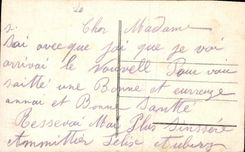 Cher Madame
s'ai avecque joi que je voi
arrivai le Nouvell Pour vou
saitté une Bonne et eurreuze
annai et Bonne Santté
Ressevoi Mai Plus Sinsséré
Ammittier